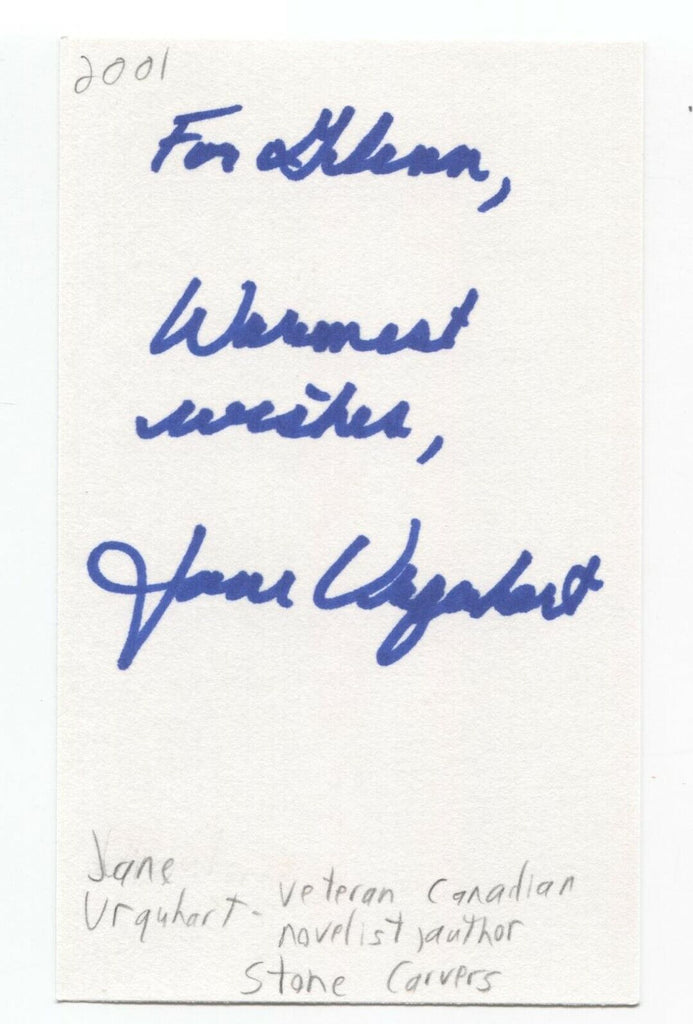 2001
For Glenn,
Warmest
wishes,
Jane Urquhart
Jane
Urquhart - veteran Canadian
novelist, author
Stone Carvers